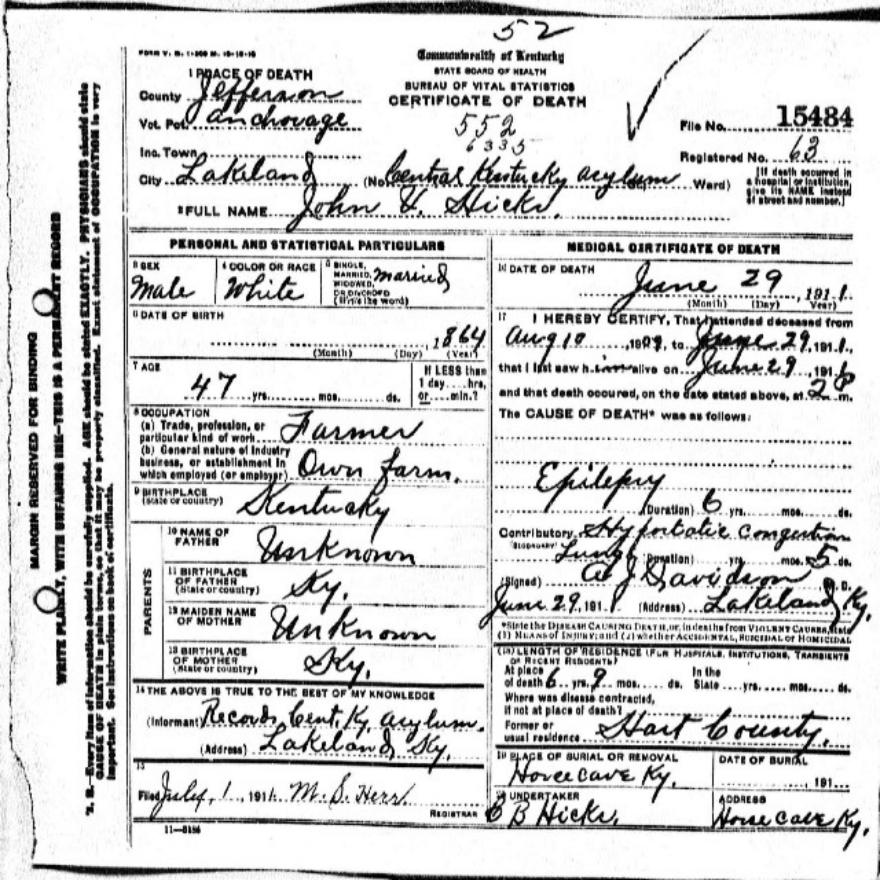 52
FORM V. S. 1-
Commonwealth of Kentucky
STATE BOARD OF HEALTH
BUREAU OF VITAL STATISTICS
CERTIFICATE OF DEATH
552
6335
1 PLACE OF DEATH
County Jefferson
Vot. Pct. Anchorage
Inc. Town
City Lakeland (No. Central Kentucky Asylum Ward)
File No. 15484
Registered No. 63
[If death occurred in
a hospital or institution,
give its NAME instead
of street and number.]
2 FULL NAME John Hicks.
PERSONAL AND STATISTICAL PARTICULARS
3 SEX
Male
4 COLOR OR RACE
White
5 SINGLE,
MARRIED,
WIDOWED,
OR DIVORCED
(Write the word)
married
6 DATE OF BIRTH
, 1864
(Month) (Day) (Year)
7 AGE
47 yrs. mos. ds.
If LESS than
1 day hrs.
or min.?
8 OCCUPATION
(a) Trade, profession, or
particular kind of work Farmer
(b) General nature of industry
business, or establishment in
which employed (or employer) Own farm.
9 BIRTHPLACE
(State or country) Kentucky
PARENTS
10 NAME OF
FATHER Unknown
11 BIRTHPLACE
OF FATHER
(State or country) Ky.
12 MAIDEN NAME
OF MOTHER Unknown
13 BIRTHPLACE
OF MOTHER
(State or country) Ky.
14 THE ABOVE IS TRUE TO THE BEST OF MY KNOWLEDGE
(Informant Records Cent. Ky. Asylum.
(Address) Lakeland Ky.
15
Filed July, 1 1911 M. S. Herr
REGISTRAR
MEDICAL CERTIFICATE OF DEATH
16 DATE OF DEATH
June 29, 1911.
(Month) (Day) Year)
17 I HEREBY CERTIFY, That I attended deceased from
Aug 18, 190, to June 29, 1911,
that I last saw him alive on June 29, 191
and that death occured, on the date stated above, at 2 P m.
The CAUSE OF DEATH* was as follows:
Epilepsy
(Duration) 6 yrs. mos. ds.
Contributory Hypostatic congestion
Lungs (Duration) yrs. mos. 5 ds.
(Signed) A J Davidson M. D.
June 29, 1911 (Address) Lakeland Ky.
*State the DISEASE CAUSING DEATH, or, in deaths from VIOLENT CAUSES, state
(1) MEANS OF INJURY; and (2) whether ACCIDENTAL, SUICIDAL or HOMICIDAL
(18) LENGTH OF RESIDENCE (FOR HOSPITALS, INSTITUTIONS, TRANSIENTS
OR RECENT RESIDENTS)
At place
of death 6 yrs. 9 mos. ds. In the
State yrs. mos. ds.
Where was disease contracted,
if not at place of death?
Former or
usual residence Hart County.
19 PLACE OF BURIAL OR REMOVAL
Horse cave Ky.
DATE OF BURIAL
, 191
20 UNDERTAKER
B Hicks.
ADDRESS
Horse cave Ky.
11—3184
MARGIN RESERVED FOR BINDING
WRITE PLAINLY, WITH UNFADING INK—THIS IS A PERMANENT RECORD
N. B.—Every item of information should be carefully supplied. AGE should be stated EXACTLY. PHYSICIANS should state
CAUSE OF DEATH in plain terms, so that it may be properly classified. Exact statement of OCCUPATION is very
important. See instructions on back of certificate.